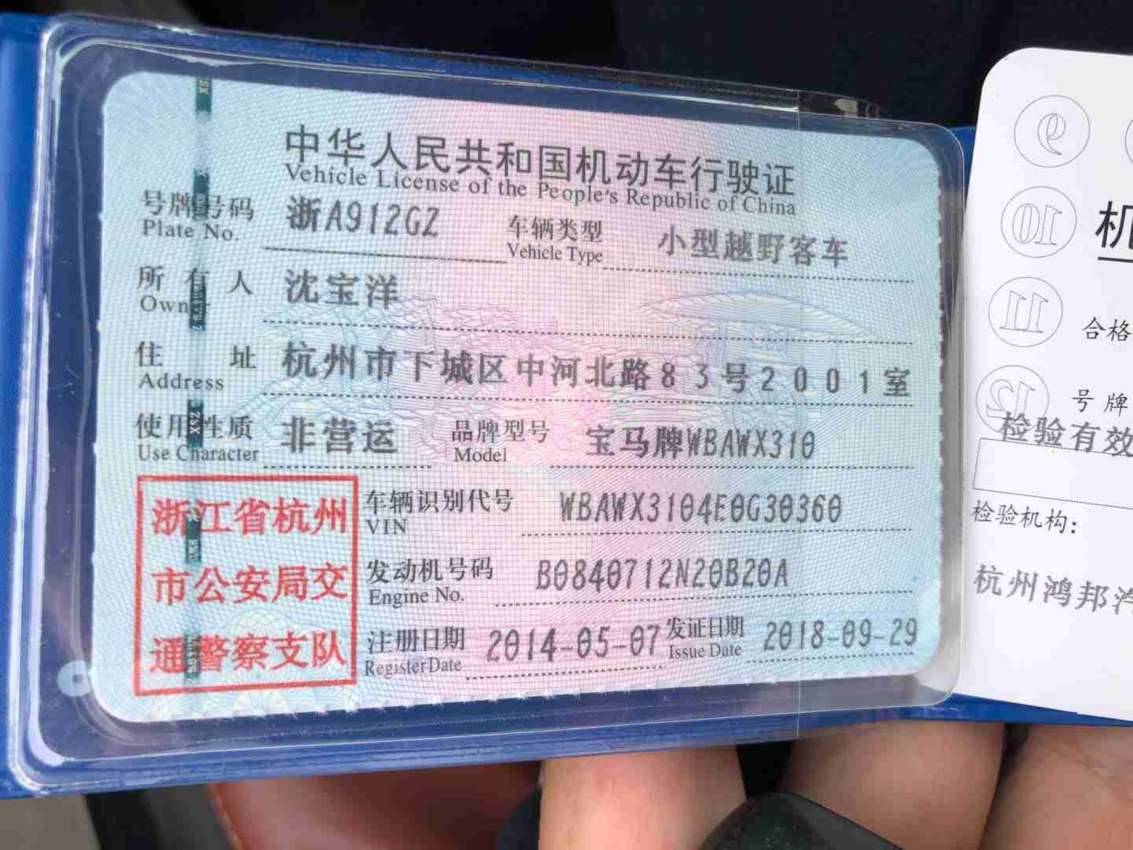 中华人民共和国机动车行驶证
Vehicle License of the People's Republic of China
号牌号码 浙A912GZ 车辆类型 小型越野客车
Plate No. Vehicle Type
所有人 沈宝洋
Owner
住址 杭州市下城区中河北路83号2001室
Address
使用性质 非营运 品牌型号 宝马牌WBAWX310
Use Character Model
浙江省杭州
市公安局交
通警察支队
车辆识别代号 WBAWX3104E0G30360
VIN
发动机号码 B0840712N20B20A
Engine No.
注册日期 2014-05-07 发证日期 2018-09-29
Register Date Issue Date
9
10
11
12
机
合格
号牌
检验有效
检验机构：
杭州鸿邦汽